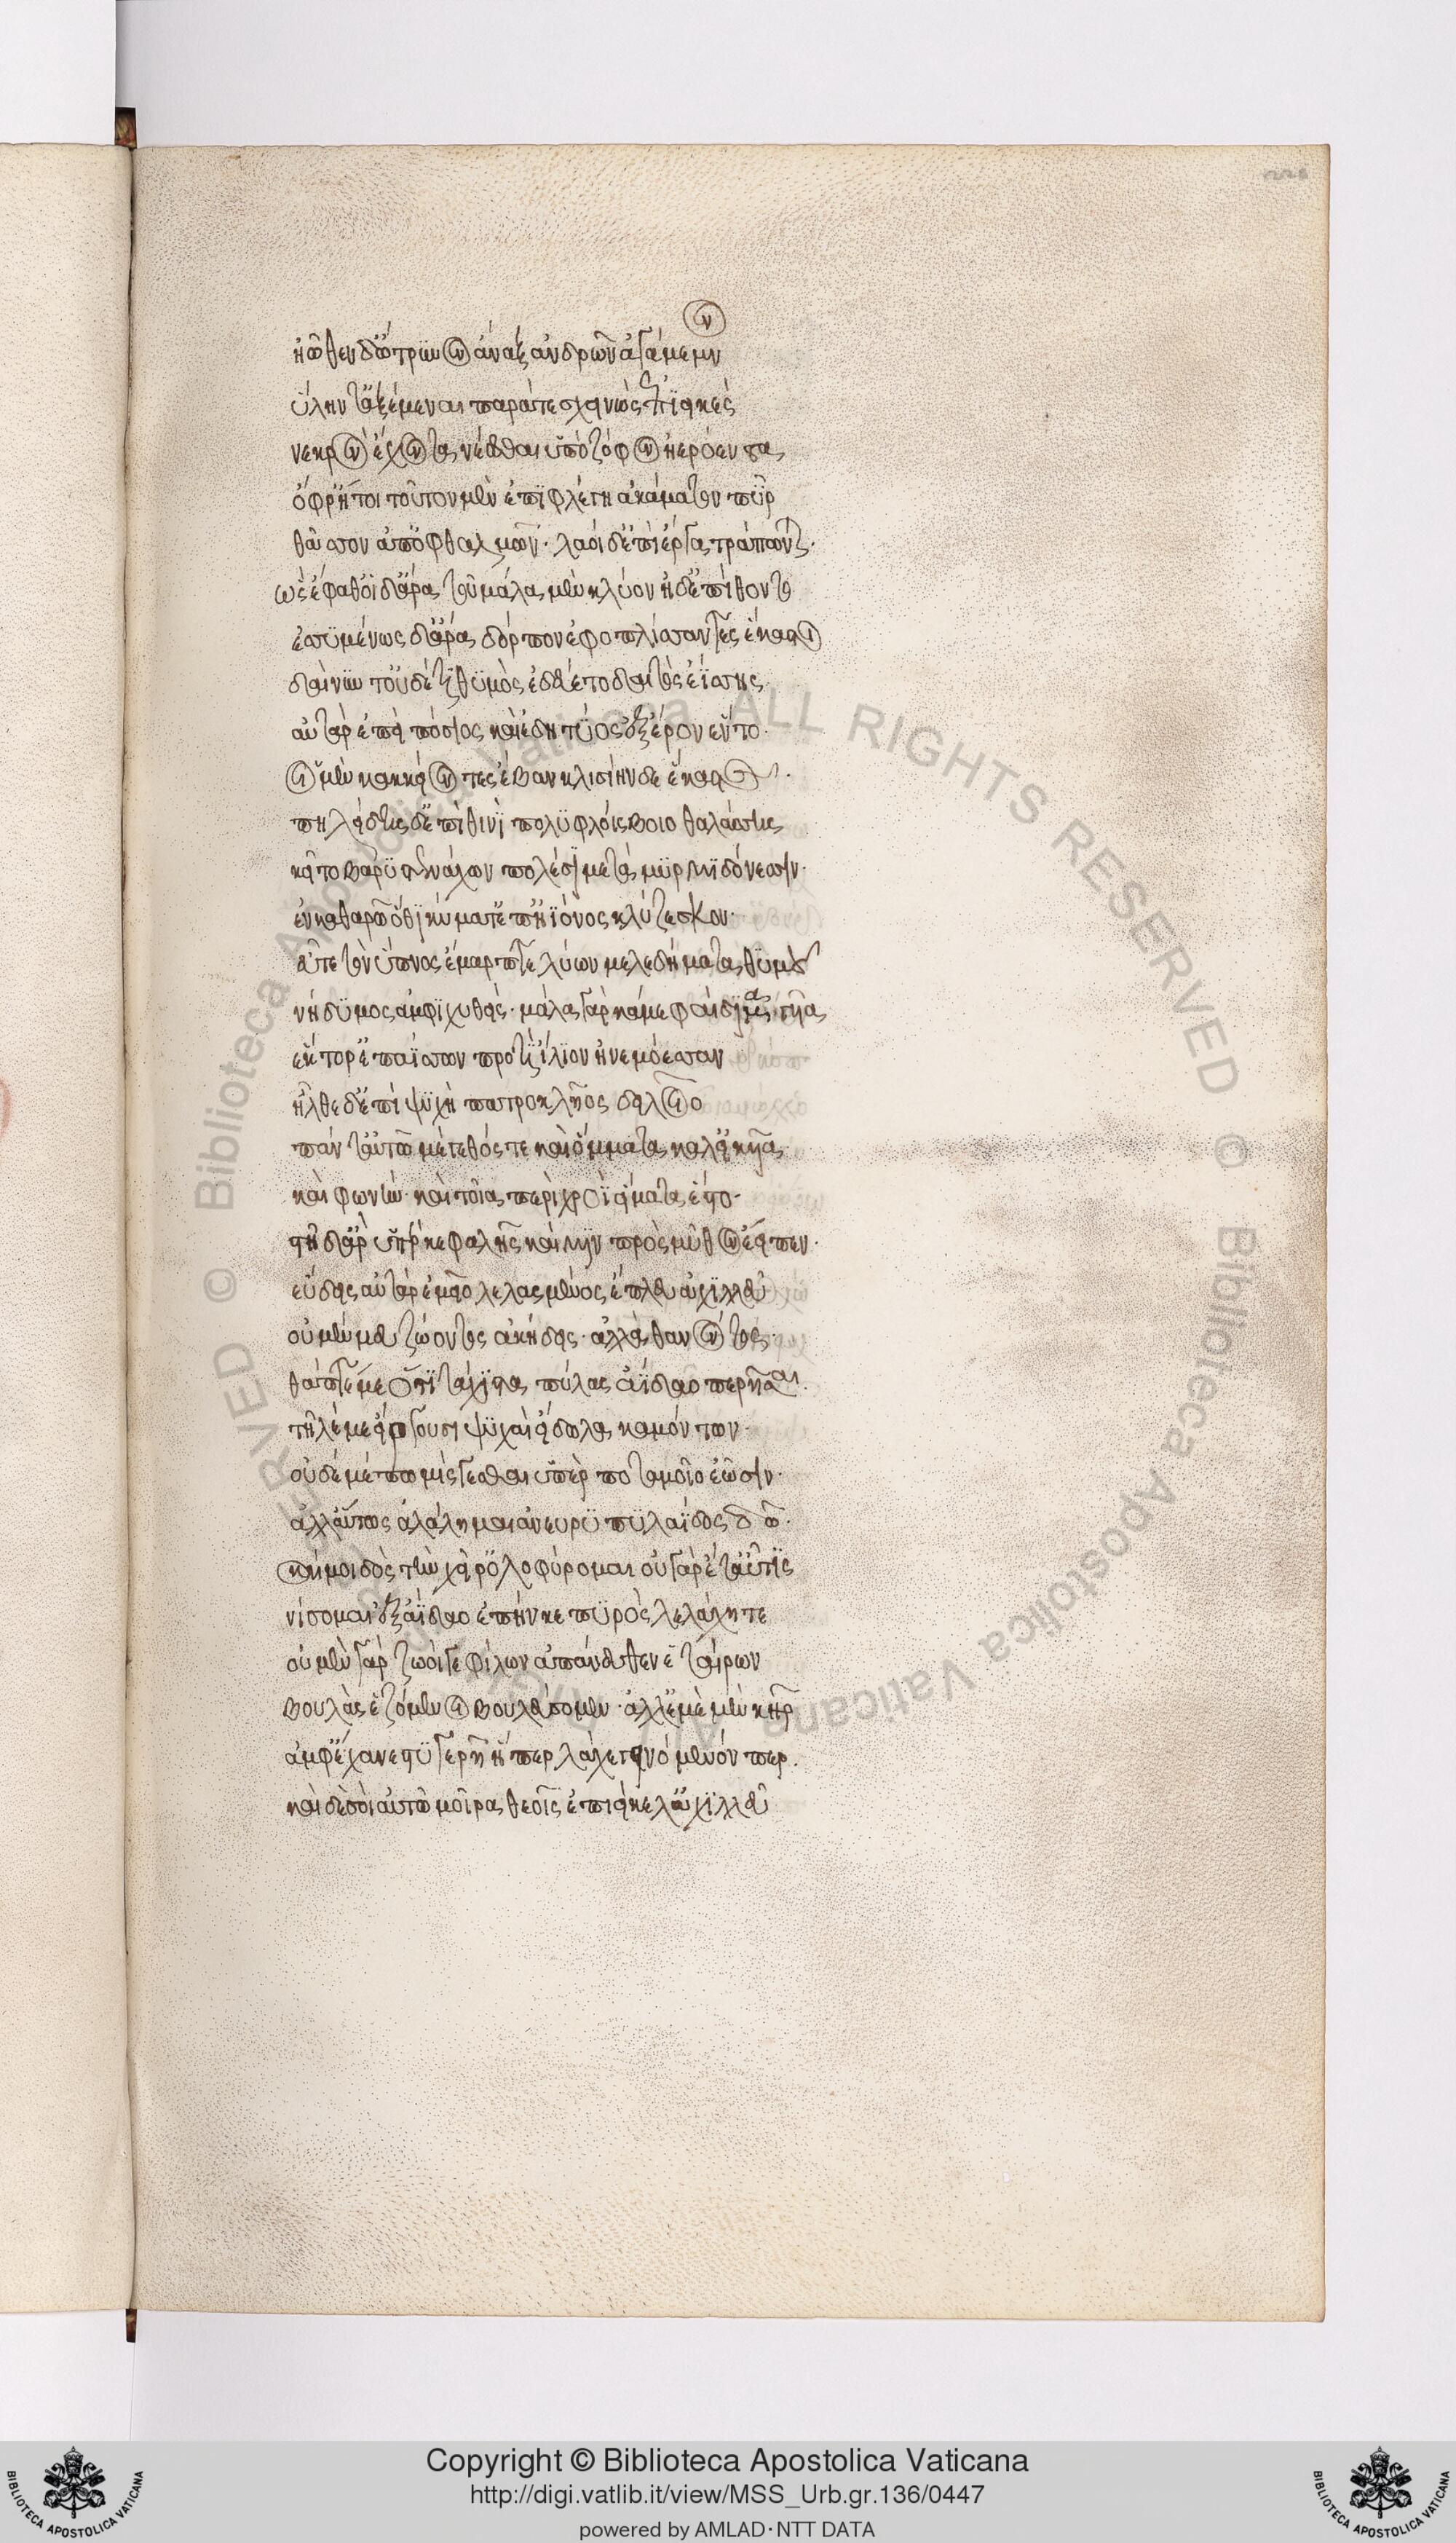 ἠῶθεν δ' ὤτρυνον ἄναξ ἀνδρῶν ἀγάμεμνον
ὕλην τ' ἀξέμεναι παρά τε σχεῖν ὡς ἐπιεικὲς
νεκρὸν ἔχοντα νέεσθαι ὑπὸ ζόφον ἠερόεντα
ὄφρ' ἤτοι τοῦτον μὲν ἐπιφλέγη ἀκάματον πῦρ
θᾶσσον ἀπ' ὀφθαλμῶν· λαοὶ δ' ἐπὶ ἔργα τράπωντ·
ὣς ἔφαθ' οἱ δ' ἄρα τοῦ μάλα μὲν κλύον ἠδ' ἐπίθοντο
ἐσσυμένως δ' ἄρα δόρπον ἐφοπλίσσαντες ἕκαστοι
δαίνυντ' οὐδέ τι θυμὸς ἐδεύετο δαιτὸς ἐίσης
αὐτὰρ ἐπεὶ πόσιος καὶ ἐδητύος ἐξ ἔρον ἕντο·
οἱ μὲν κακκείοντες ἔβαν κλισίην δὲ ἕκαστος·
πηλείδης δ' ἐπὶ θινὶ πολυφλοίσβοιο θαλάσσης
κεῖτο βαρὺ στενάχων πολέσι μετὰ μυρμιδόνεσσιν·
ἐν καθαρῷ ὅθι κύματ' ἐπ' ἠιόνος κλύζεσκον·
εὖτε τὸν ὕπνος ἔμαρπτε λύων μελεδήματα θυμοῦ
νήδυμος ἀμφιχυθείς· μάλα γὰρ κάμε φαίδιμα γυῖα
ἕκτορ' ἐπαΐσσων προτὶ ἴλιον ἠνεμόεσσαν
ἦλθε δ' ἐπὶ ψυχὴ πατροκλῆος δειλοῖο
πάντ' αὐτῷ μέγεθός τε καὶ ὄμματα καλ' εἰκυῖα
καὶ φωνήν· καὶ τοῖα περὶ χροῒ εἵματα ἕστο·
στῆ δ' ἄρ' ὑπὲρ κεφαλῆς καί μιν πρὸς μῦθον ἔειπεν·
εὕδεις αὐτὰρ ἐμεῖο λελασμένος ἔπλευ ἀχιλλεῦ
οὐ μέν μευ ζώοντος ἀκήδεις· ἀλλὰ θανόντος·
θάπτέ με ὅττι τάχιστα πύλας ἀΐδαο περῆσαι.
τῆλέ με εἴργουσι ψυχαὶ εἴδωλα καμόντων·
οὐδέ μέ πω μίσγεσθαι ὑπὲρ ποταμοῖο ἐῶσιν·
ἀλλ' αὔτως ἀλάλημαι ἀν' εὐρυπυλ' ἄϊδος δῶ·
καί μοι δὸς τὴν χεῖρ' ὀλοφύρομαι οὐ γὰρ ἔτ' αὖτις
νίσομαι ἐξ ἀΐδαο ἐπήν κε πυρὸς λελάχητε
οὐ μὲν γὰρ ζωοί γε φίλων ἀπάνευθεν ἑταίρων
βουλὰς ἑζόμενοι βουλεύσομεν· ἀλλ' ἐμὲ μὲν κὴρ
ἀμφέχανε στυγερὴ ἥπερ λάχε γεινόμενόν περ.
καὶ δὲ σοὶ αὐτῷ μοῖρα θεοῖς ἐπιείκελ' ἀχιλλεῦ
Copyright © Biblioteca Apostolica Vaticana
http://digi.vatlib.it/view/MSS_Urb.gr.136/0447
powered by AMLAD·NTT DATA